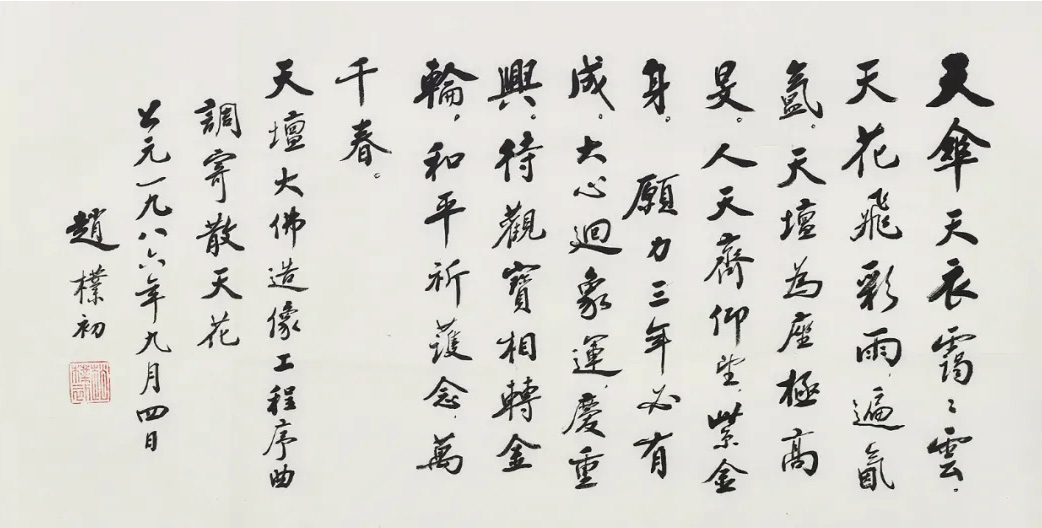 天傘天衣靄〻雲。
天花飛彩雨，遍氤
氳。天壇為座極高
旻。人天齊仰望，紫金
身。　願力三年必有
成。大心迴象運，慶重
興。待觀寶相轉金
輪。和平祈護念，萬
千春。
天壇大佛造像工程序曲
調寄散天花
公元一九八六年九月四日
趙樸初